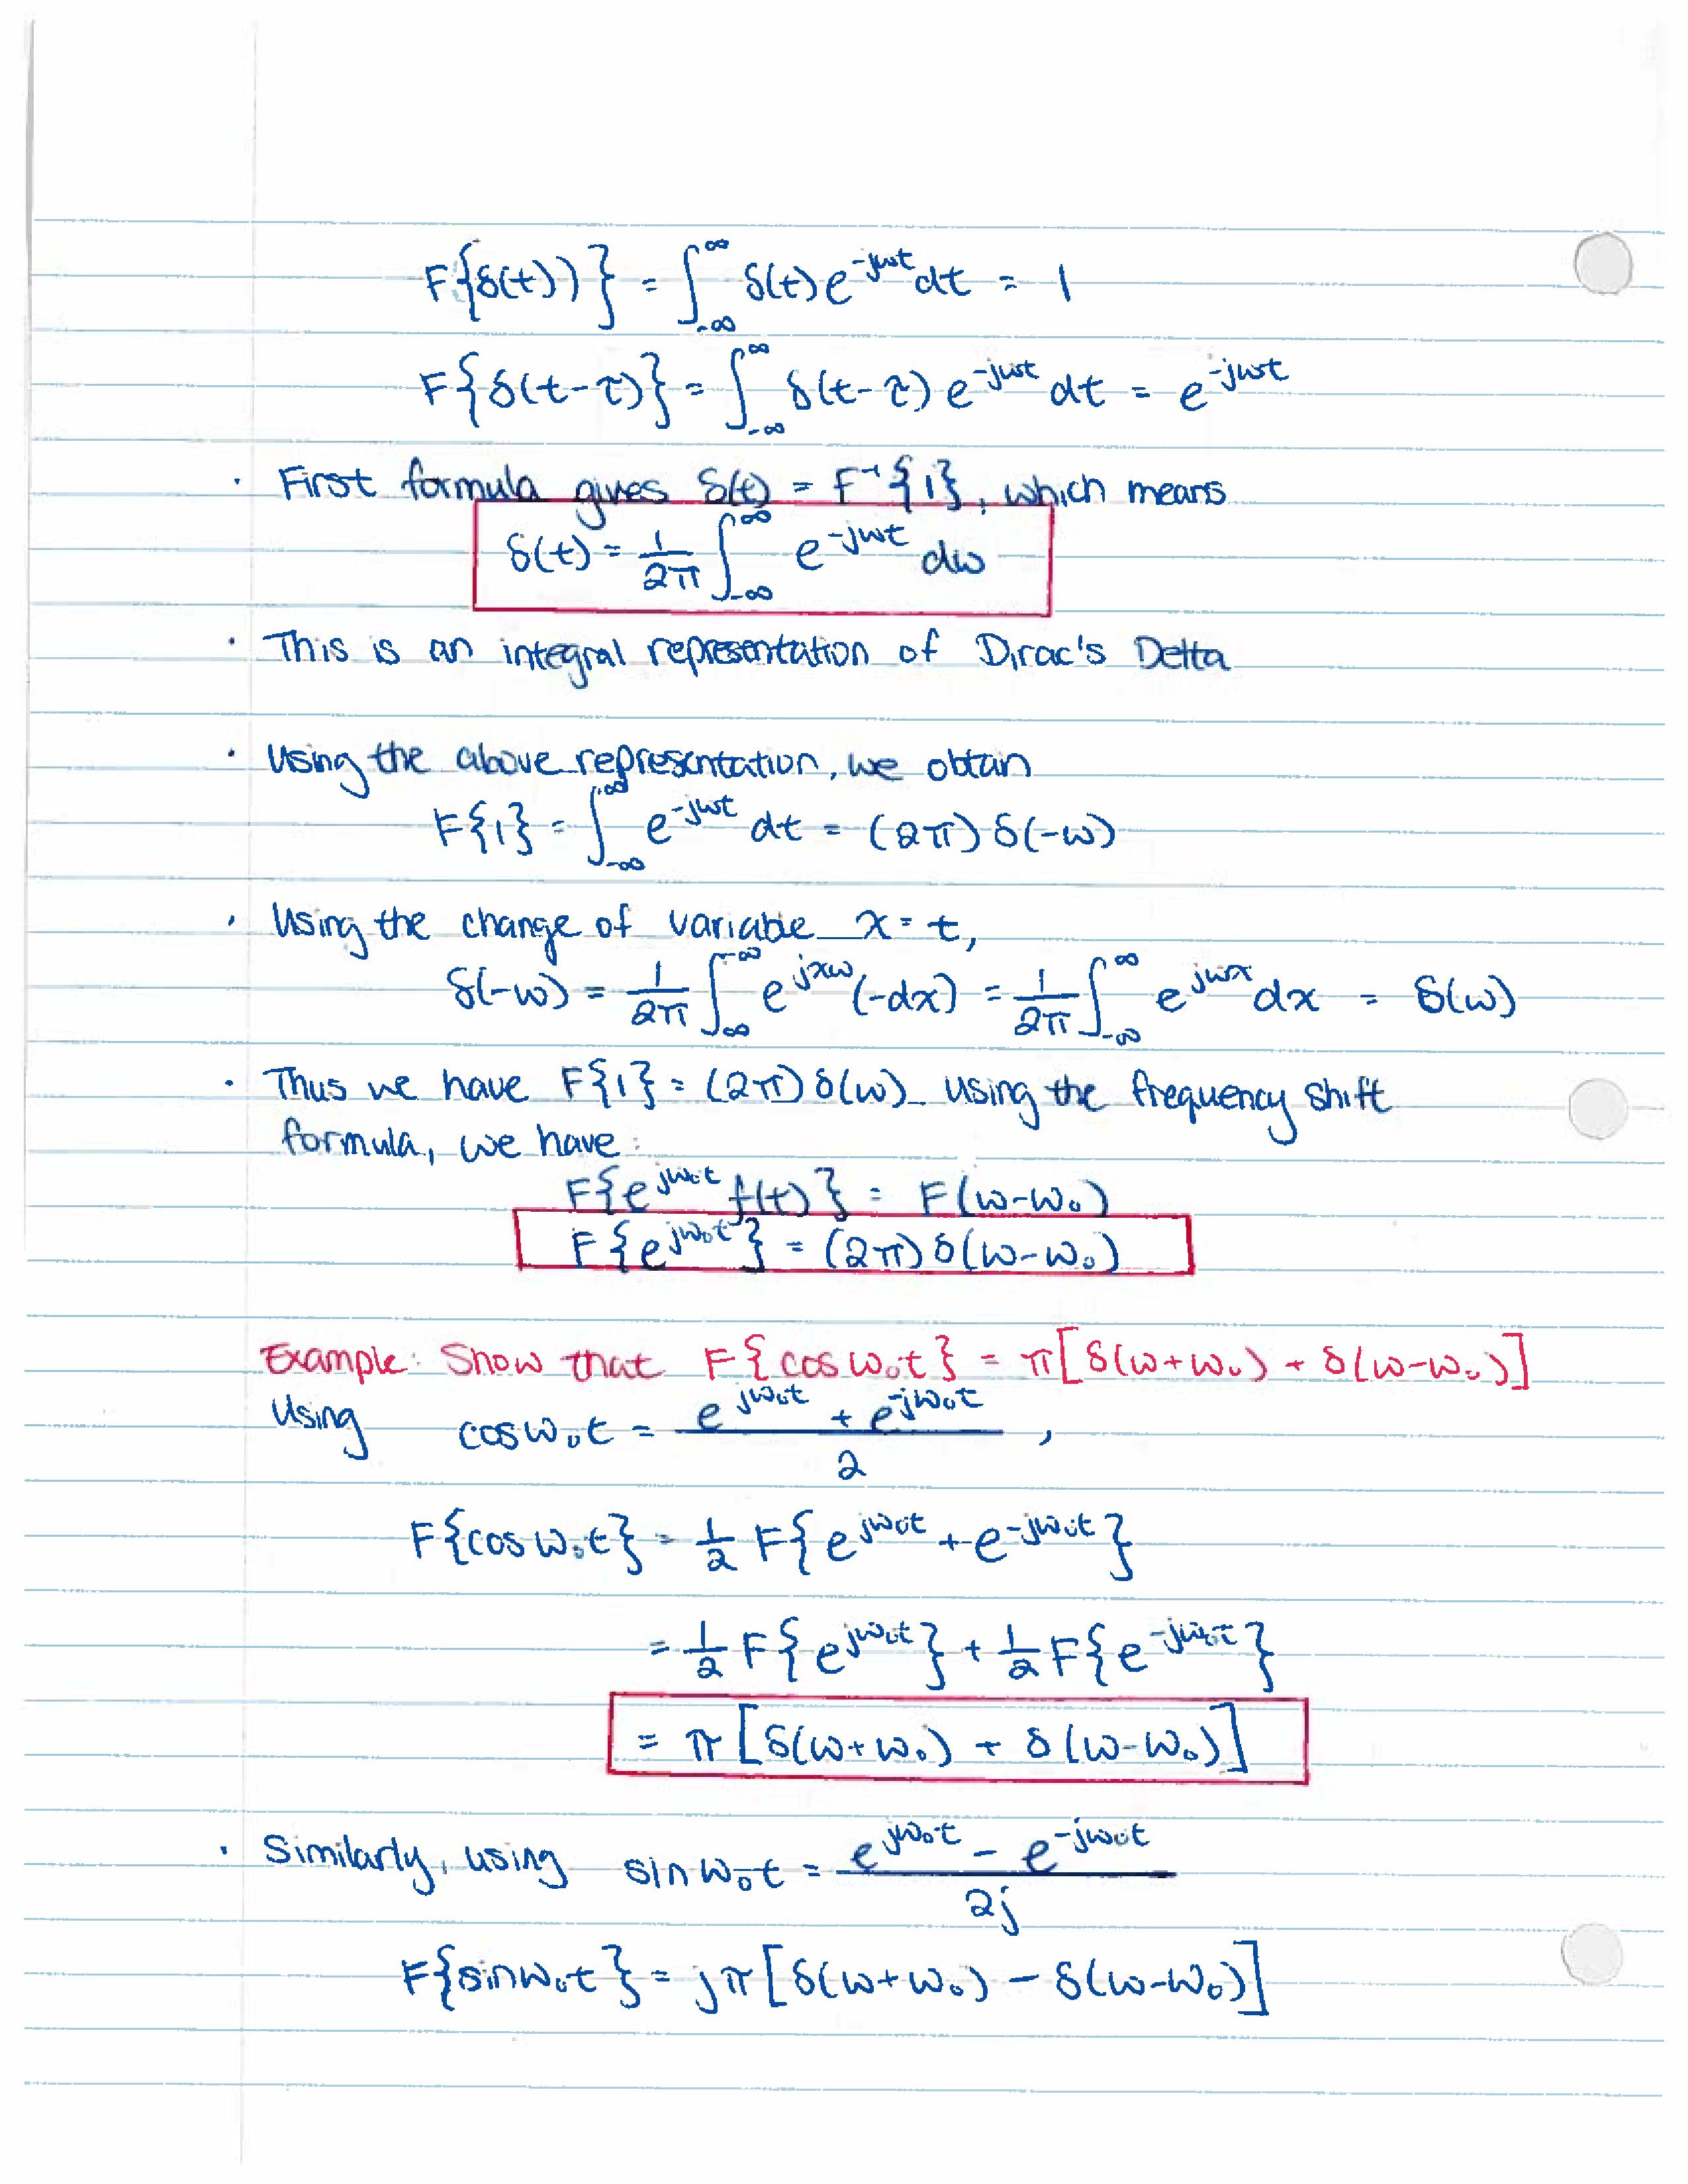 F{δ(t))} = ∫_{-∞}^{∞} δ(t)e^{-jωt}dt = 1
F{δ(t-τ)} = ∫_{-∞}^{∞} δ(t-τ) e^{-jωt} dt = e^{-jωt}
· First formula gives δ(t) = F^{-1}{1}, which means
δ(t) = \frac{1}{2π} ∫_{-∞}^{∞} e^{-jωt} dω
· This is an integral representation of Dirac's Delta
· Using the above representation, we obtain
F{1} = ∫_{-∞}^{∞} e^{-jωt} dt = (2π) δ(-ω)
· Using the change of variable x = t,
δ(-ω) = \frac{1}{2π} ∫_{∞}^{-∞} e^{jxω} (-dx) = \frac{1}{2π} ∫_{-∞}^{∞} e^{jωx} dx = δ(ω)
· Thus we have F{1} = (2π) δ(ω). Using the frequency shift
formula, we have:
F{e^{jω₀t} f(t)} = F(ω-ω₀)
F{e^{jω₀t}} = (2π) δ(ω-ω₀)
Example: Show that F{cos ω₀t} = π[δ(ω+ω₀) + δ(ω-ω₀)]
Using cos ω₀t = \frac{e^{jω₀t} + e^{-jω₀t}}{2},
F{cos ω₀t} = \frac{1}{2} F{e^{jω₀t} + e^{-jω₀t}}
= \frac{1}{2} F{e^{jω₀t}} + \frac{1}{2} F{e^{-jω₀t}}
= π [δ(ω+ω₀) + δ(ω-ω₀)]
· Similarly, using sin ω₀t = \frac{e^{jω₀t} - e^{-jω₀t}}{2j}
F{sin ω₀t} = jπ[δ(ω+ω₀) - δ(ω-ω₀)]